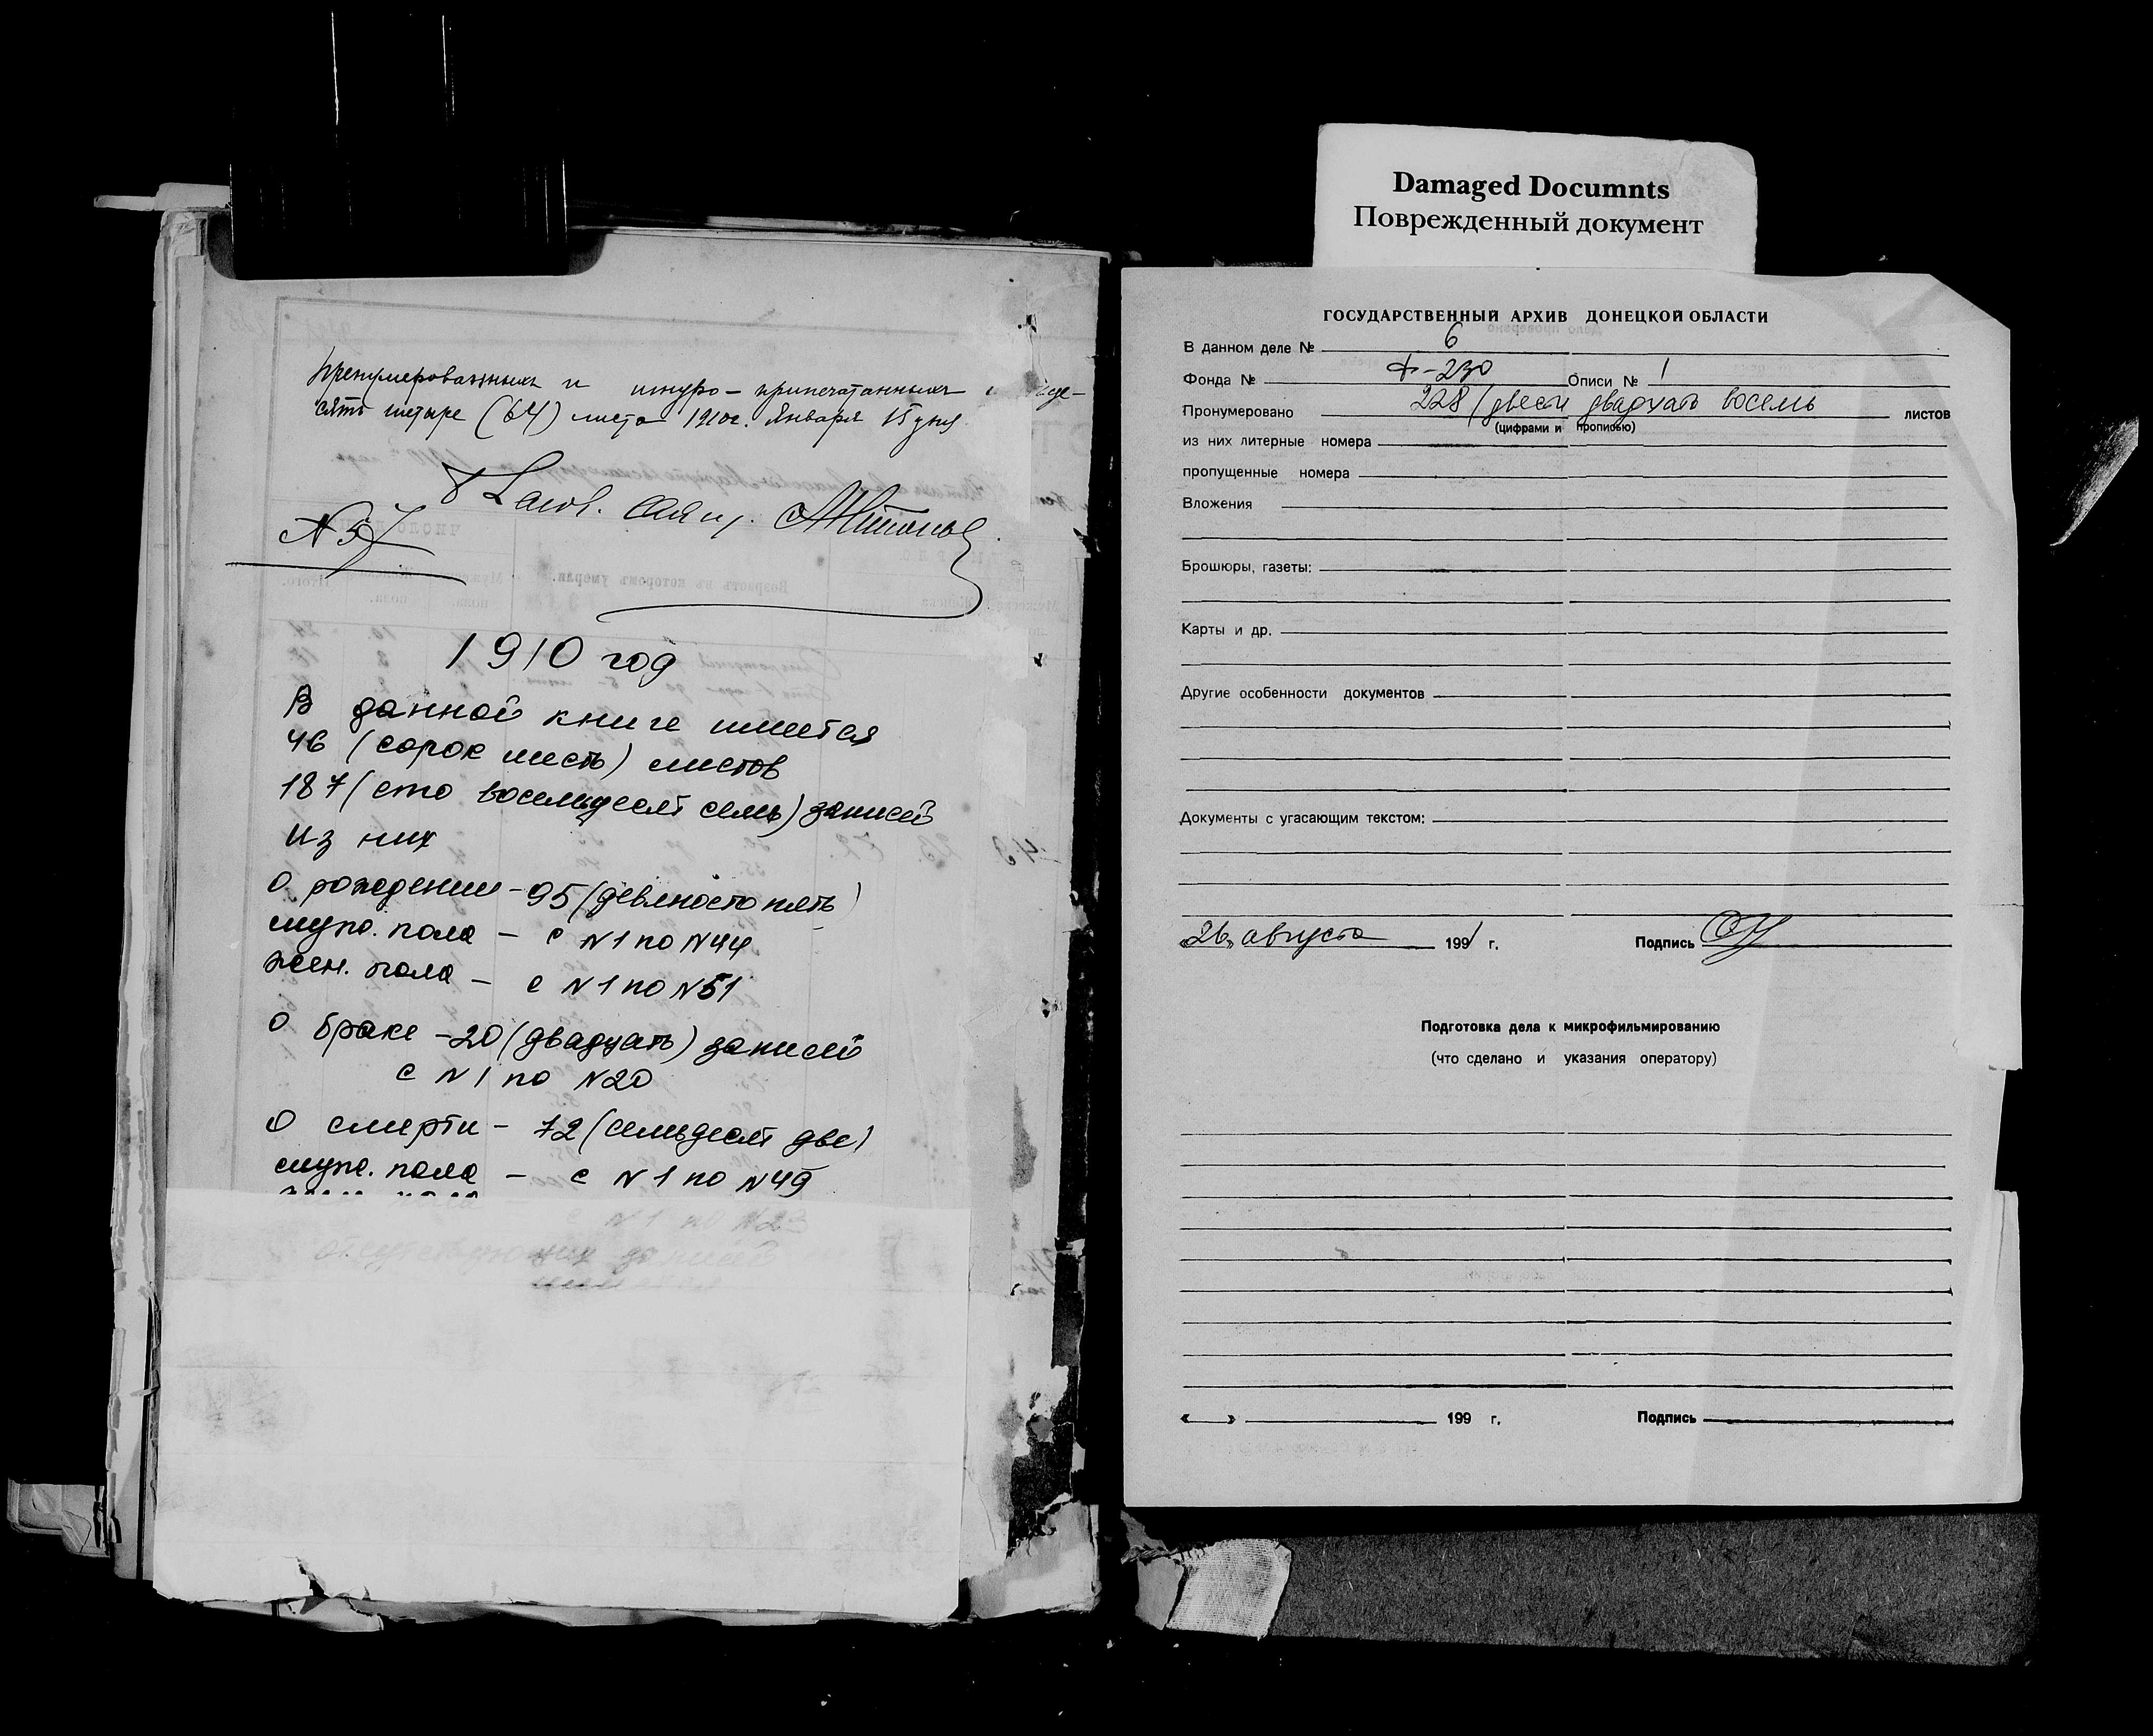 пренумерованныхъ и шнуро-припечатанныхъ
сятъ четыре (64) листа 1910г. Января 15 дня
N 57
1910 год
В данной книге имеется
46 (сорок шесть) листов
187 (сто восемьдесят семь) записей
из них
о рождении - 95 (девяносто пять)
муж. пола - с N1 по N44
жен. пола - с N1 по N51
о браке - 20 (двадцать) записей
с N1 по N20
о смерти - 72 (семьдесят две)
муж. пола - с N1 по N49
жен. пола
с N1 по N23
отсутствующих записей
Damaged Documnts
Поврежденный документ
ГОСУДАРСТВЕННЫЙ АРХИВ ДОНЕЦКОЙ ОБЛАСТИ
В данном деле № 6
Фонда № ф-230 Описи № 1
Пронумеровано 228 (двести двадцать восемь листов
(цифрами и прописью)
из них литерные номера
пропущенные номера
Вложения
Брошюры, газеты:
Карты и др.
Другие особенности документов
Документы с угасающим текстом:
«26» августа 1991 г. Подпись
Подготовка дела к микрофильмированию
(что сделано и указания оператору)
« » 199 г. Подпись